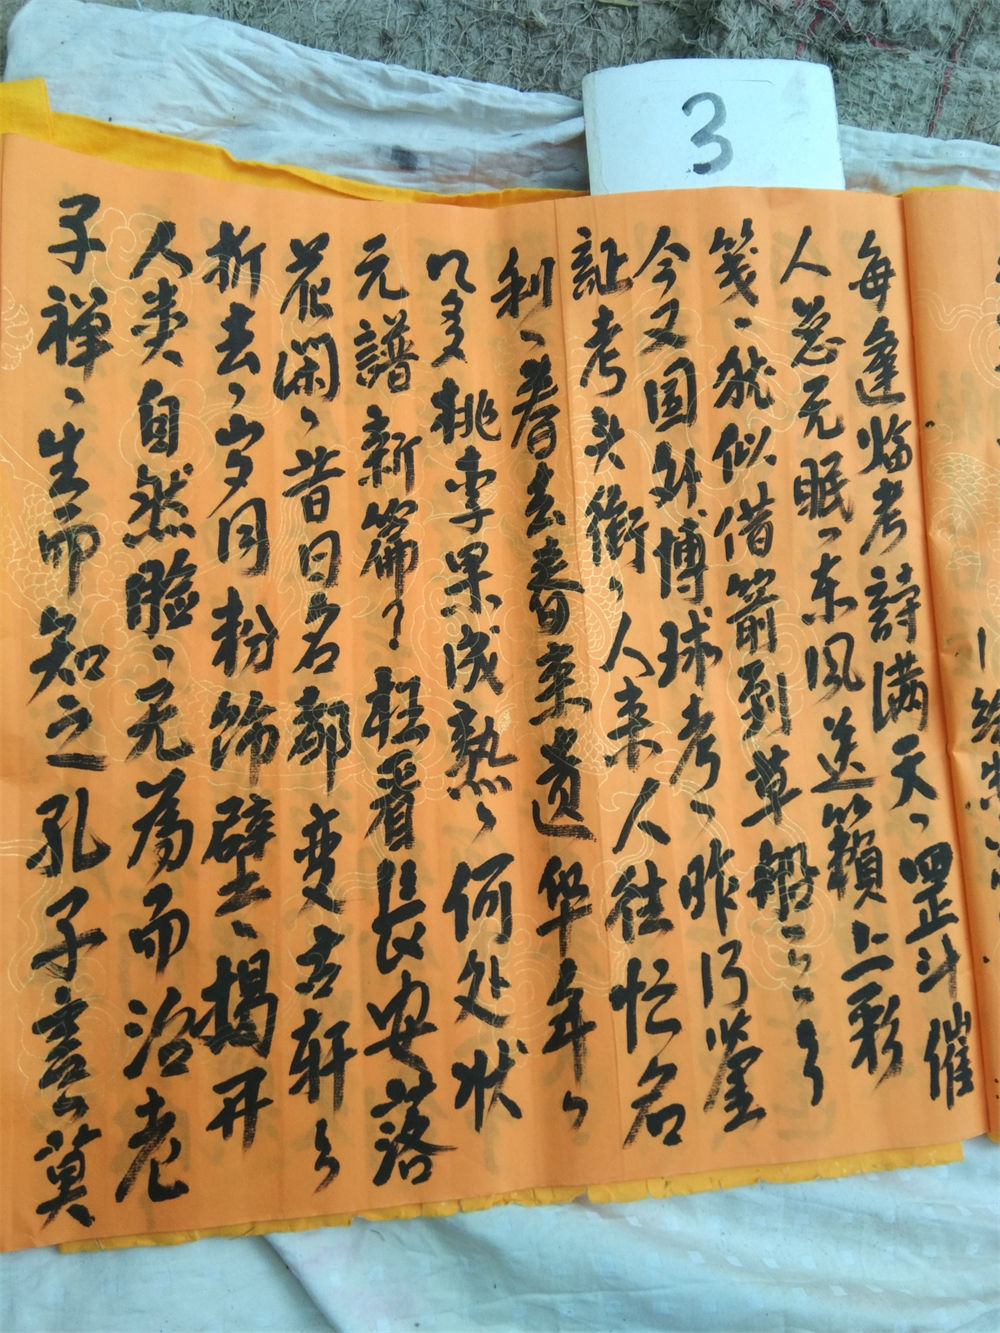 3
每逢临考詩满天、罡斗催
人总无眠、东风送籟上彩
箋、犹似借箭到草船
今又国外博球考、昨仍萤
証考头衔、人来人往忙名
利、春去春来过华年
又多桃李果成熟、何处状
元譜新篇、枉看長安落
花闲、昔日名都变古轩
折去、岁月粉饰壁、揭开
人类自然脸、无為而治老
子禅、生而知之孔子言、莫